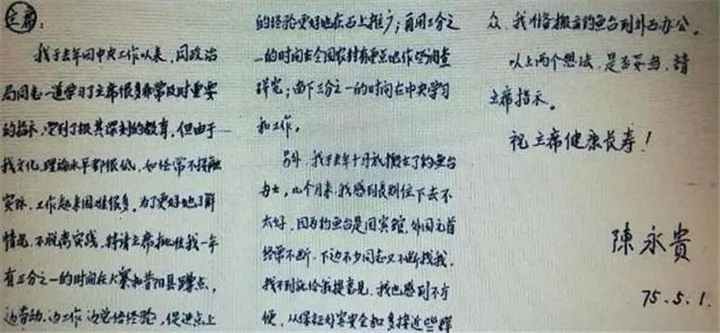 主席：
我于去年同中央工作以来，同政治
局同志一道学习了主席很多非常及时重要
的指示，受到了极其深刻的教育，但由于
我文化、理论水平都很低，如经常不接触
实际，工作起来困难很多。为了更好地了解
情况，不脱离实践，特请主席批准我一年
有三分之一的时间在大寨和昔阳县蹲点，
边劳动、边工作、边总结经验，促进点上
的经验更好地在面上推广；再用三分之
一的时间去全国农村有重点地作些调查
研究；留下三分之一的时间在中央学习
和工作。
另外，我于去年十月就搬在了钓鱼台
办公，几个月来，我感到长期住下去不
太好，因为钓鱼台是国宾馆，外国元首
经常不断，下边不少同志又不断找我，
找不到就给我提意见，我也感到不方
便，从保证外宾安全和多接近些群
众，我准备搬出钓鱼台到外面办公。
以上两个想法，是否妥当，请
主席指示。
祝主席健康长寿！
陳永貴
75.5.1.